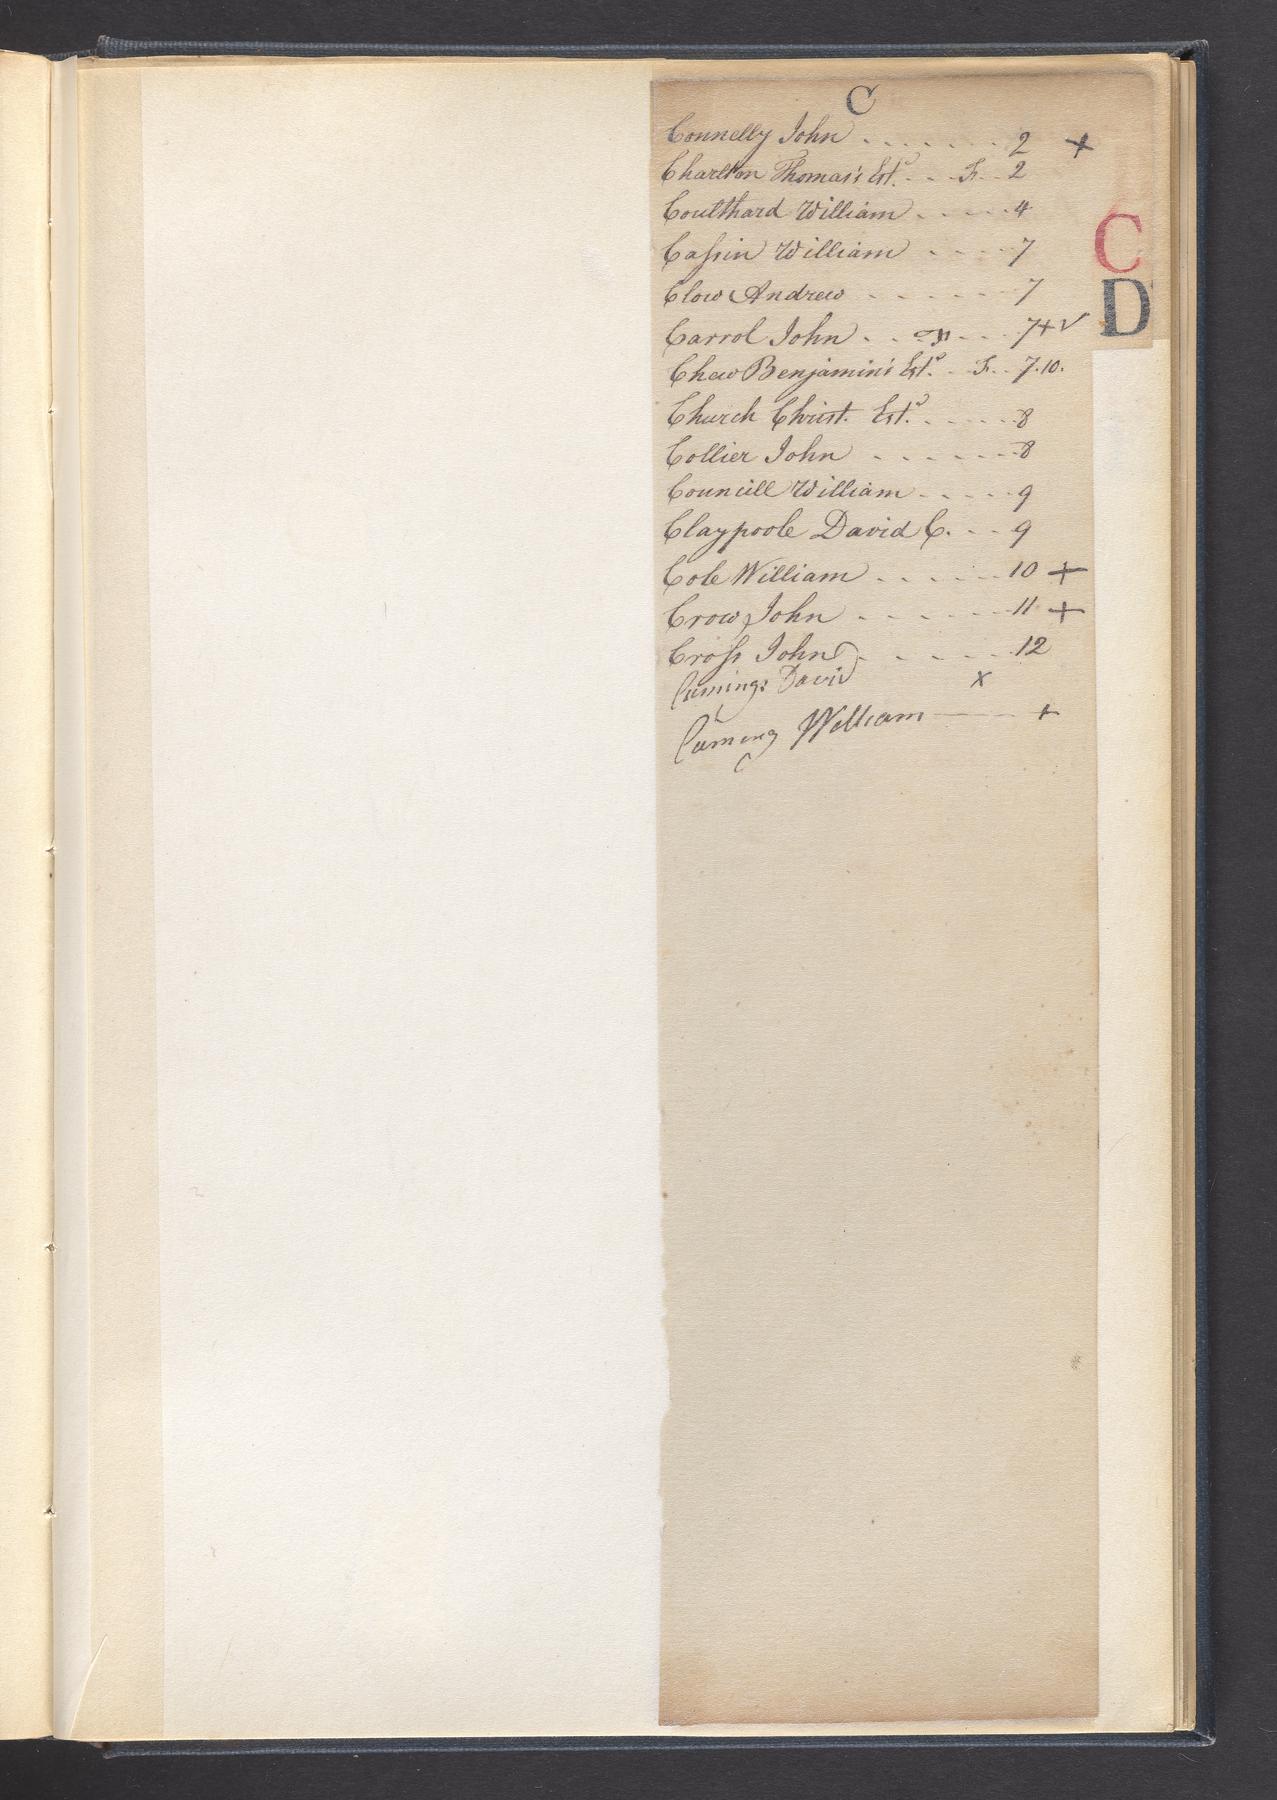 C
Connelly John . . . . . . . 2 +
Charlton Thomas's Est.ᵈ . . F. . 2
Coulthard William . . . . . 4
Cassin William . . . . 7
Clow Andrew . . . . . 7
Carrol John . . F . . . 7 + √
Chew Benjamin's Est.ᵈ . . F. . 7.10.
Church Christ. Est.ᵈ . . . . . 8
Collier John . . . . . . . 8
Councill William . . . . . 9
Claypoole David C. . . 9
Cole William . . . . . . 10 +
Crow John . . . . . . . 11 +
Cross John . . . . . . 12
Cumings David x
Cuming William —— +
C
D